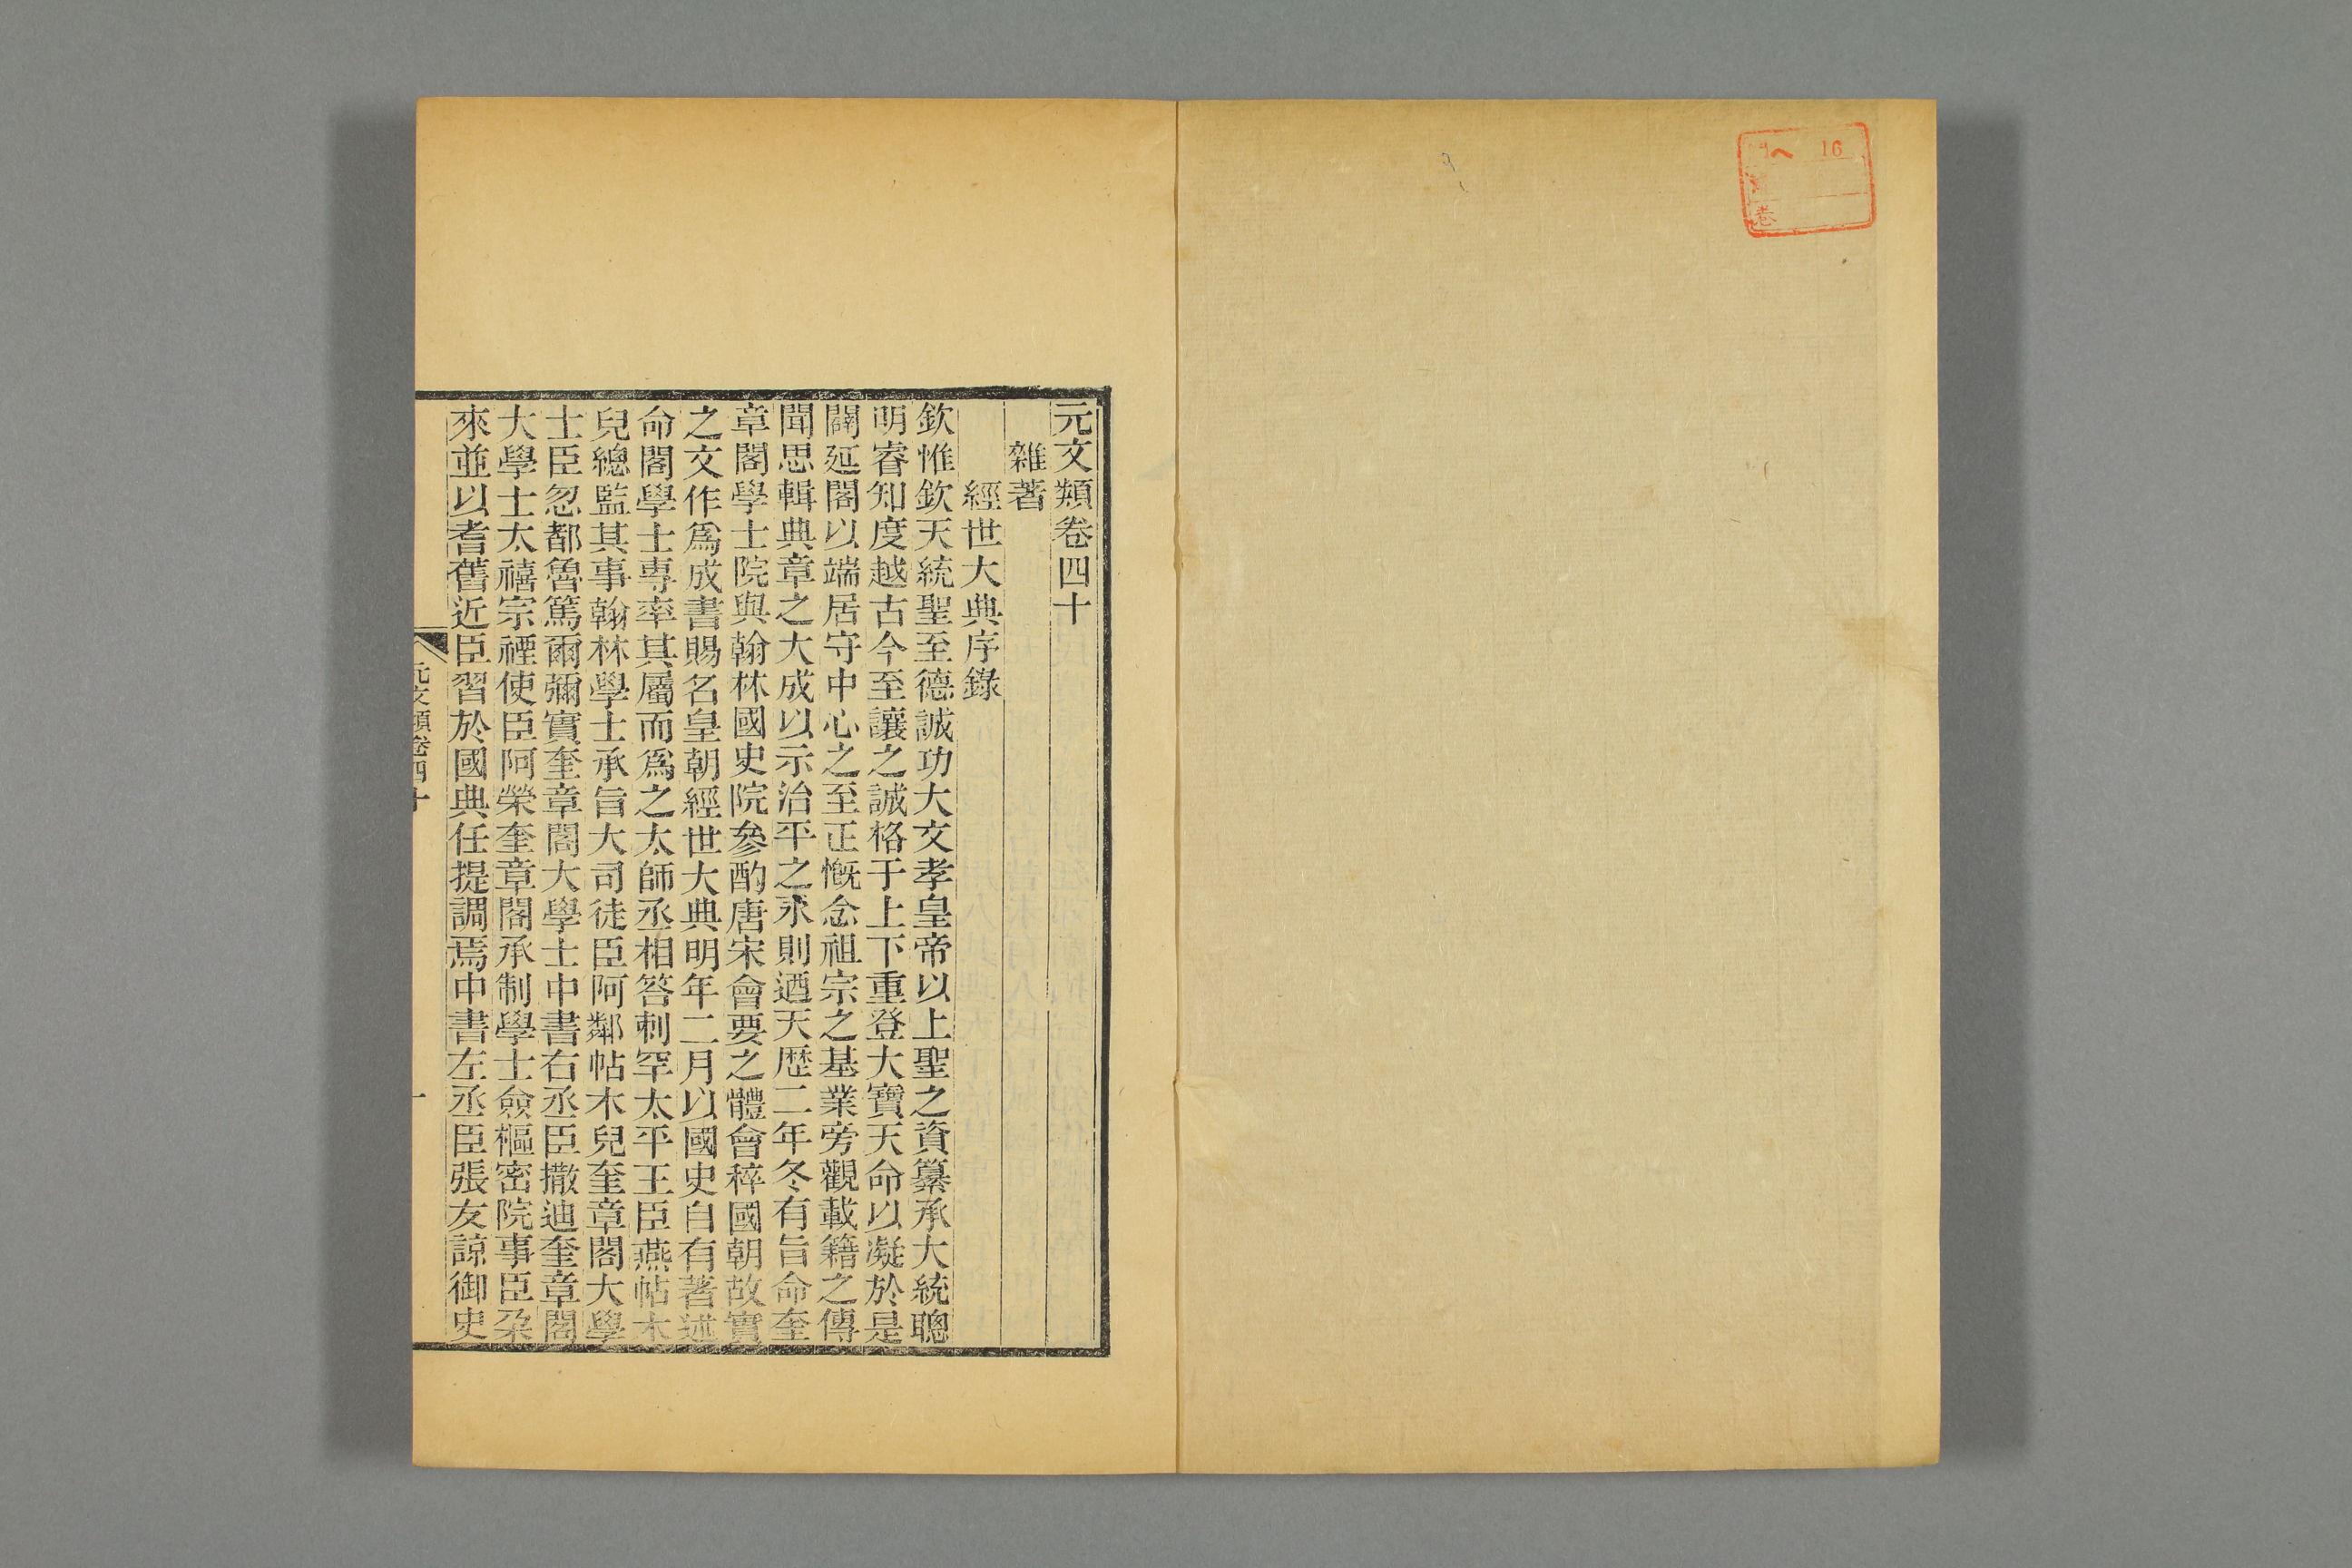 16
元文類卷四十
雜著
經世大典序錄
欽惟欽天統聖至德誠功大文孝皇帝以上聖之資纂承大統聰
明睿知度越古今至讓之誠格于上下重登大寶天命以凝於是
闢延閣以端居守中心之至正慨念祖宗之基業旁觀載籍之傳
聞思輯典章之大成以示治平之永則迺天歷二年冬有旨命奎
章閣學士院與翰林國史院參酌唐宋會要之體會稡國朝故實
之文作爲成書賜名皇朝經世大典明年二月以國史自有著述
命閣學士專率其屬而爲之太師丞相答剌罕太平王臣燕帖木
兒總監其事翰林學士承旨大司徒臣阿鄰帖木兒奎章閣大學
士臣忽都魯篤爾彌實奎章閣大學士中書右丞臣撒迪奎章閣
大學士太禧宗禋使臣阿榮奎章閣承制學士僉樞密院事臣朶
來並以耆舊近臣習於國典任提調焉中書左丞臣張友諒御史
元文類卷四十
一